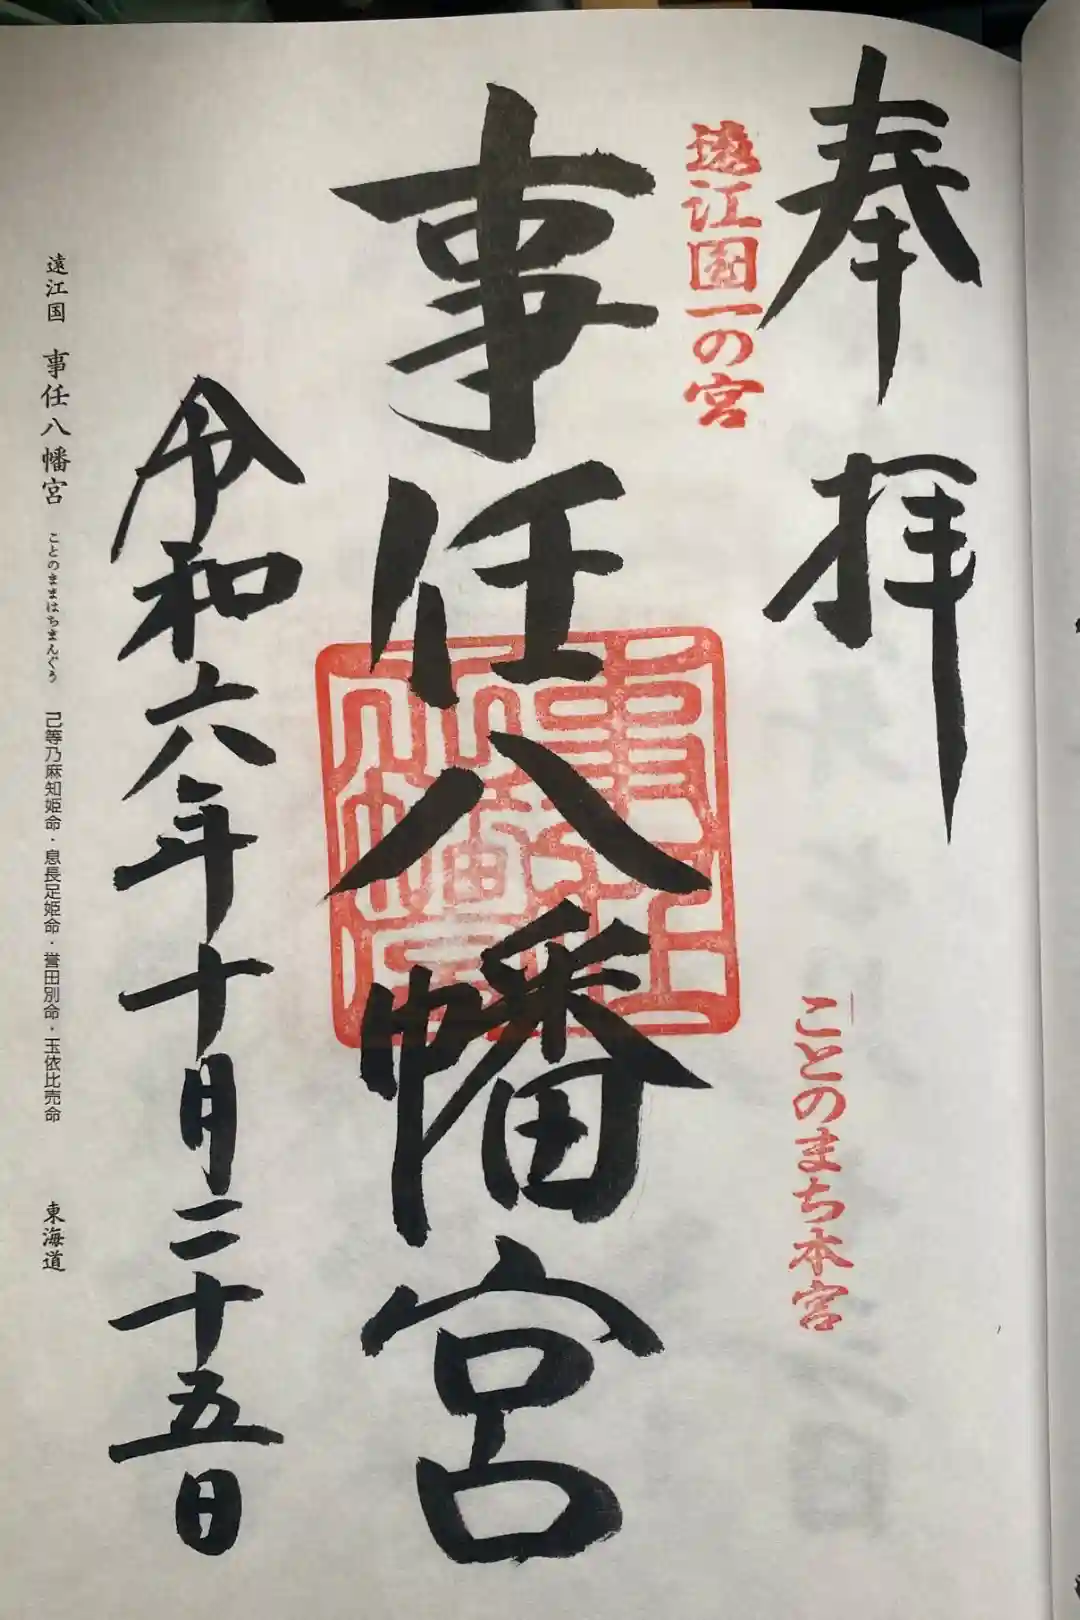 奉拝
遠江国一の宮
ことのまち本宮
事任八幡宮
令和六年十月二十五日
遠江国 事任八幡宮 ことのままはちまんぐう 己等乃麻知姫命・息長足姫命・誉田別命・玉依比売命 東海道